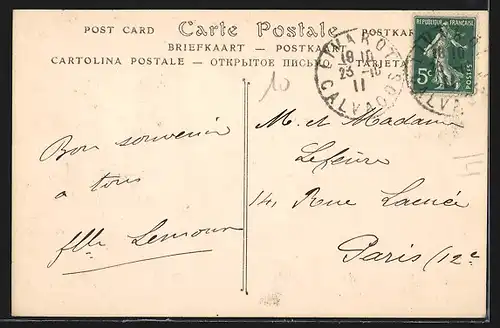 POST CARD Carte Postale POSTKAR
BRIEFKAART — POSTKAART
CARTOLINA POSTALE — ОТКРЫТОЕ ПИСЬ TARJETA
RÉPUBLIQUE FRANÇAISE
5c POSTES
19 10
23 -10
11
CALVADOS
10
Bon souvenir
à tous
M. et Madame
Lefèvre
14, Rue Lacuée
Paris (12e